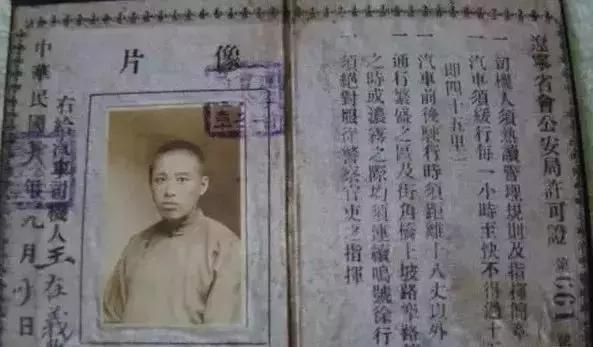 遼寧省會公安局許可證 第661號
一 司機人須熟讀管理規則及指揮簡章
一 汽車須緩行每一小時至快不得過十
即四十五里
一 汽車前後駛行時須距離十八丈以外
一 通行繁盛之區及街角橋上坡路窄路
之時或濃霧之際均須連續鳴號徐行
一 須絕對服從警察官吏之指揮
像片
右給汽車司機人王在義
中華民國十八年九月日